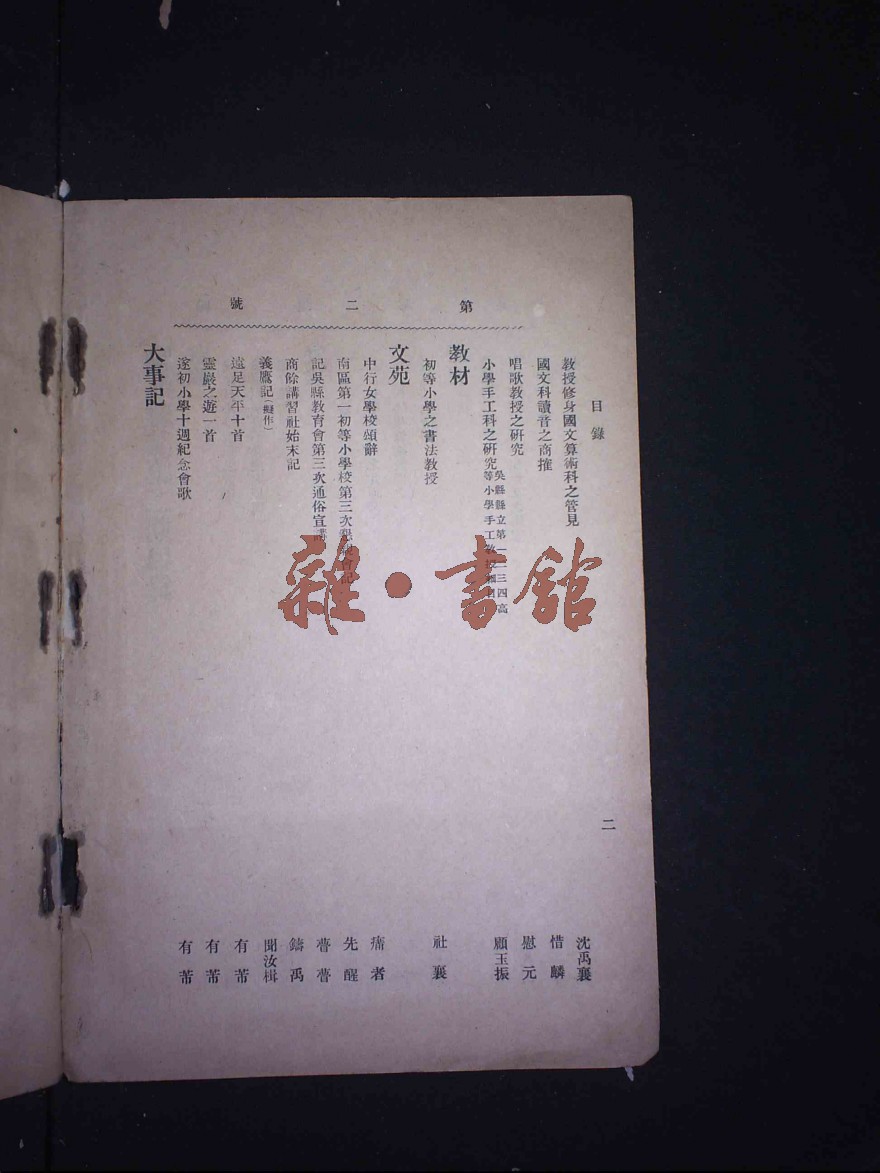 第二號
目錄
二
教授修身國文算術科之管見 沈禹襄
國文科讀音之商搉 惜麟
唱歌教授之研究 慰元
小學手工科之研究 吳縣縣立第一二三四高等小學手工教授 顧玉振
教材
初等小學之書法教授 社襄
文苑
中行女學校頌辭 痡者
南區第一初等小學校第三次懇親會記 先醒
記吳縣教育會第三次通俗宣講 瞢瞢
商餘講習社始末記 鑄禹
義鷹記(擬作) 聞汝楫
遠足天平十首 有芾
靈巖之遊一首 有芾
遂初小學十週紀念會歌 有芾
大事記
雜·書館